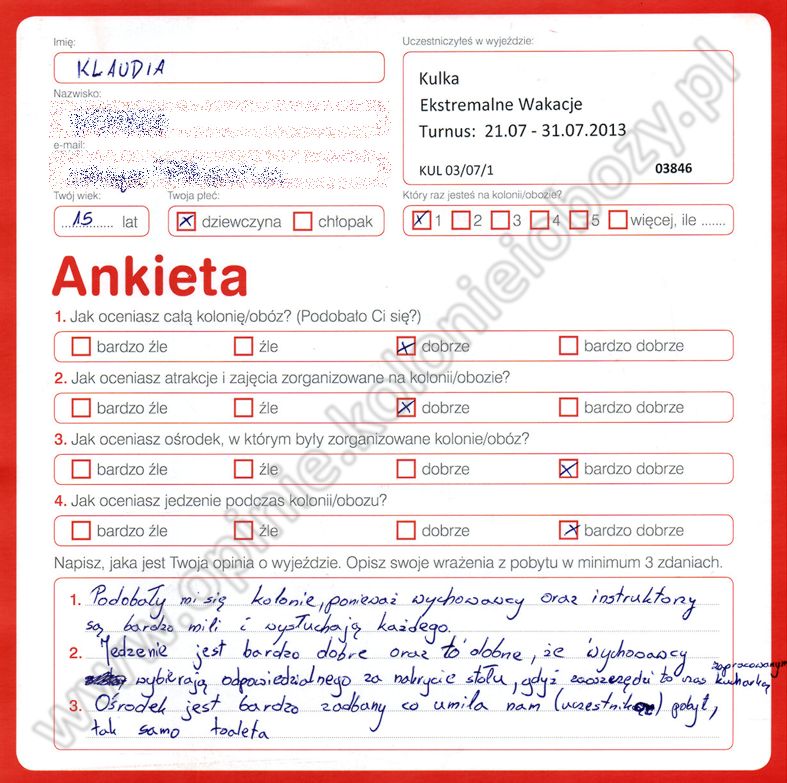 Imię:
KLAUDIA
Nazwisko:
e-mail:
Twój wiek:
15 lat
Twoja płeć:
dziewczyna chłopak
Uczestniczyłeś w wyjeździe:
Kulka
Ekstremalne Wakacje
Turnus: 21.07 - 31.07.2013
KUL 03/07/1 03846
Który raz jesteś na kolonii/obozie?
1 2 3 4 5 więcej, ile .......
Ankieta
1. Jak oceniasz całą kolonię/obóz? (Podobało Ci się?)
bardzo źle źle dobrze bardzo dobrze
2. Jak oceniasz atrakcje i zajęcia zorganizowane na kolonii/obozie?
bardzo źle źle dobrze bardzo dobrze
3. Jak oceniasz ośrodek, w którym byly zorganizowane kolonie/obóz?
bardzo źle źle dobrze bardzo dobrze
4. Jak oceniasz jedzenie podczas kolonii/obozu?
bardzo źle źle dobrze bardzo dobrze
Napisz, jaka jest Twoja opinia o wyjeździe. Opisz swoje wrażenia z pobytu w minimum 3 zdaniach.
1. Podobały mi się kolonie, ponieważ wychowawcy oraz instruktorzy
są bardzo mili i wysłuchają każdego.
2. Jedzenie jest bardzo dobre oraz to dobne, że wychowawcy
wybierają odpowiedzialnego za nakrycie stołu, gdyż zaoszczędzi to czas zapracowanym kucharką
3. Ośrodek jest bardzo zadbany co umila nam (uczestnikom) pobyt,
tak samo toaleta
www.opinie.kolonieiobozy.pl